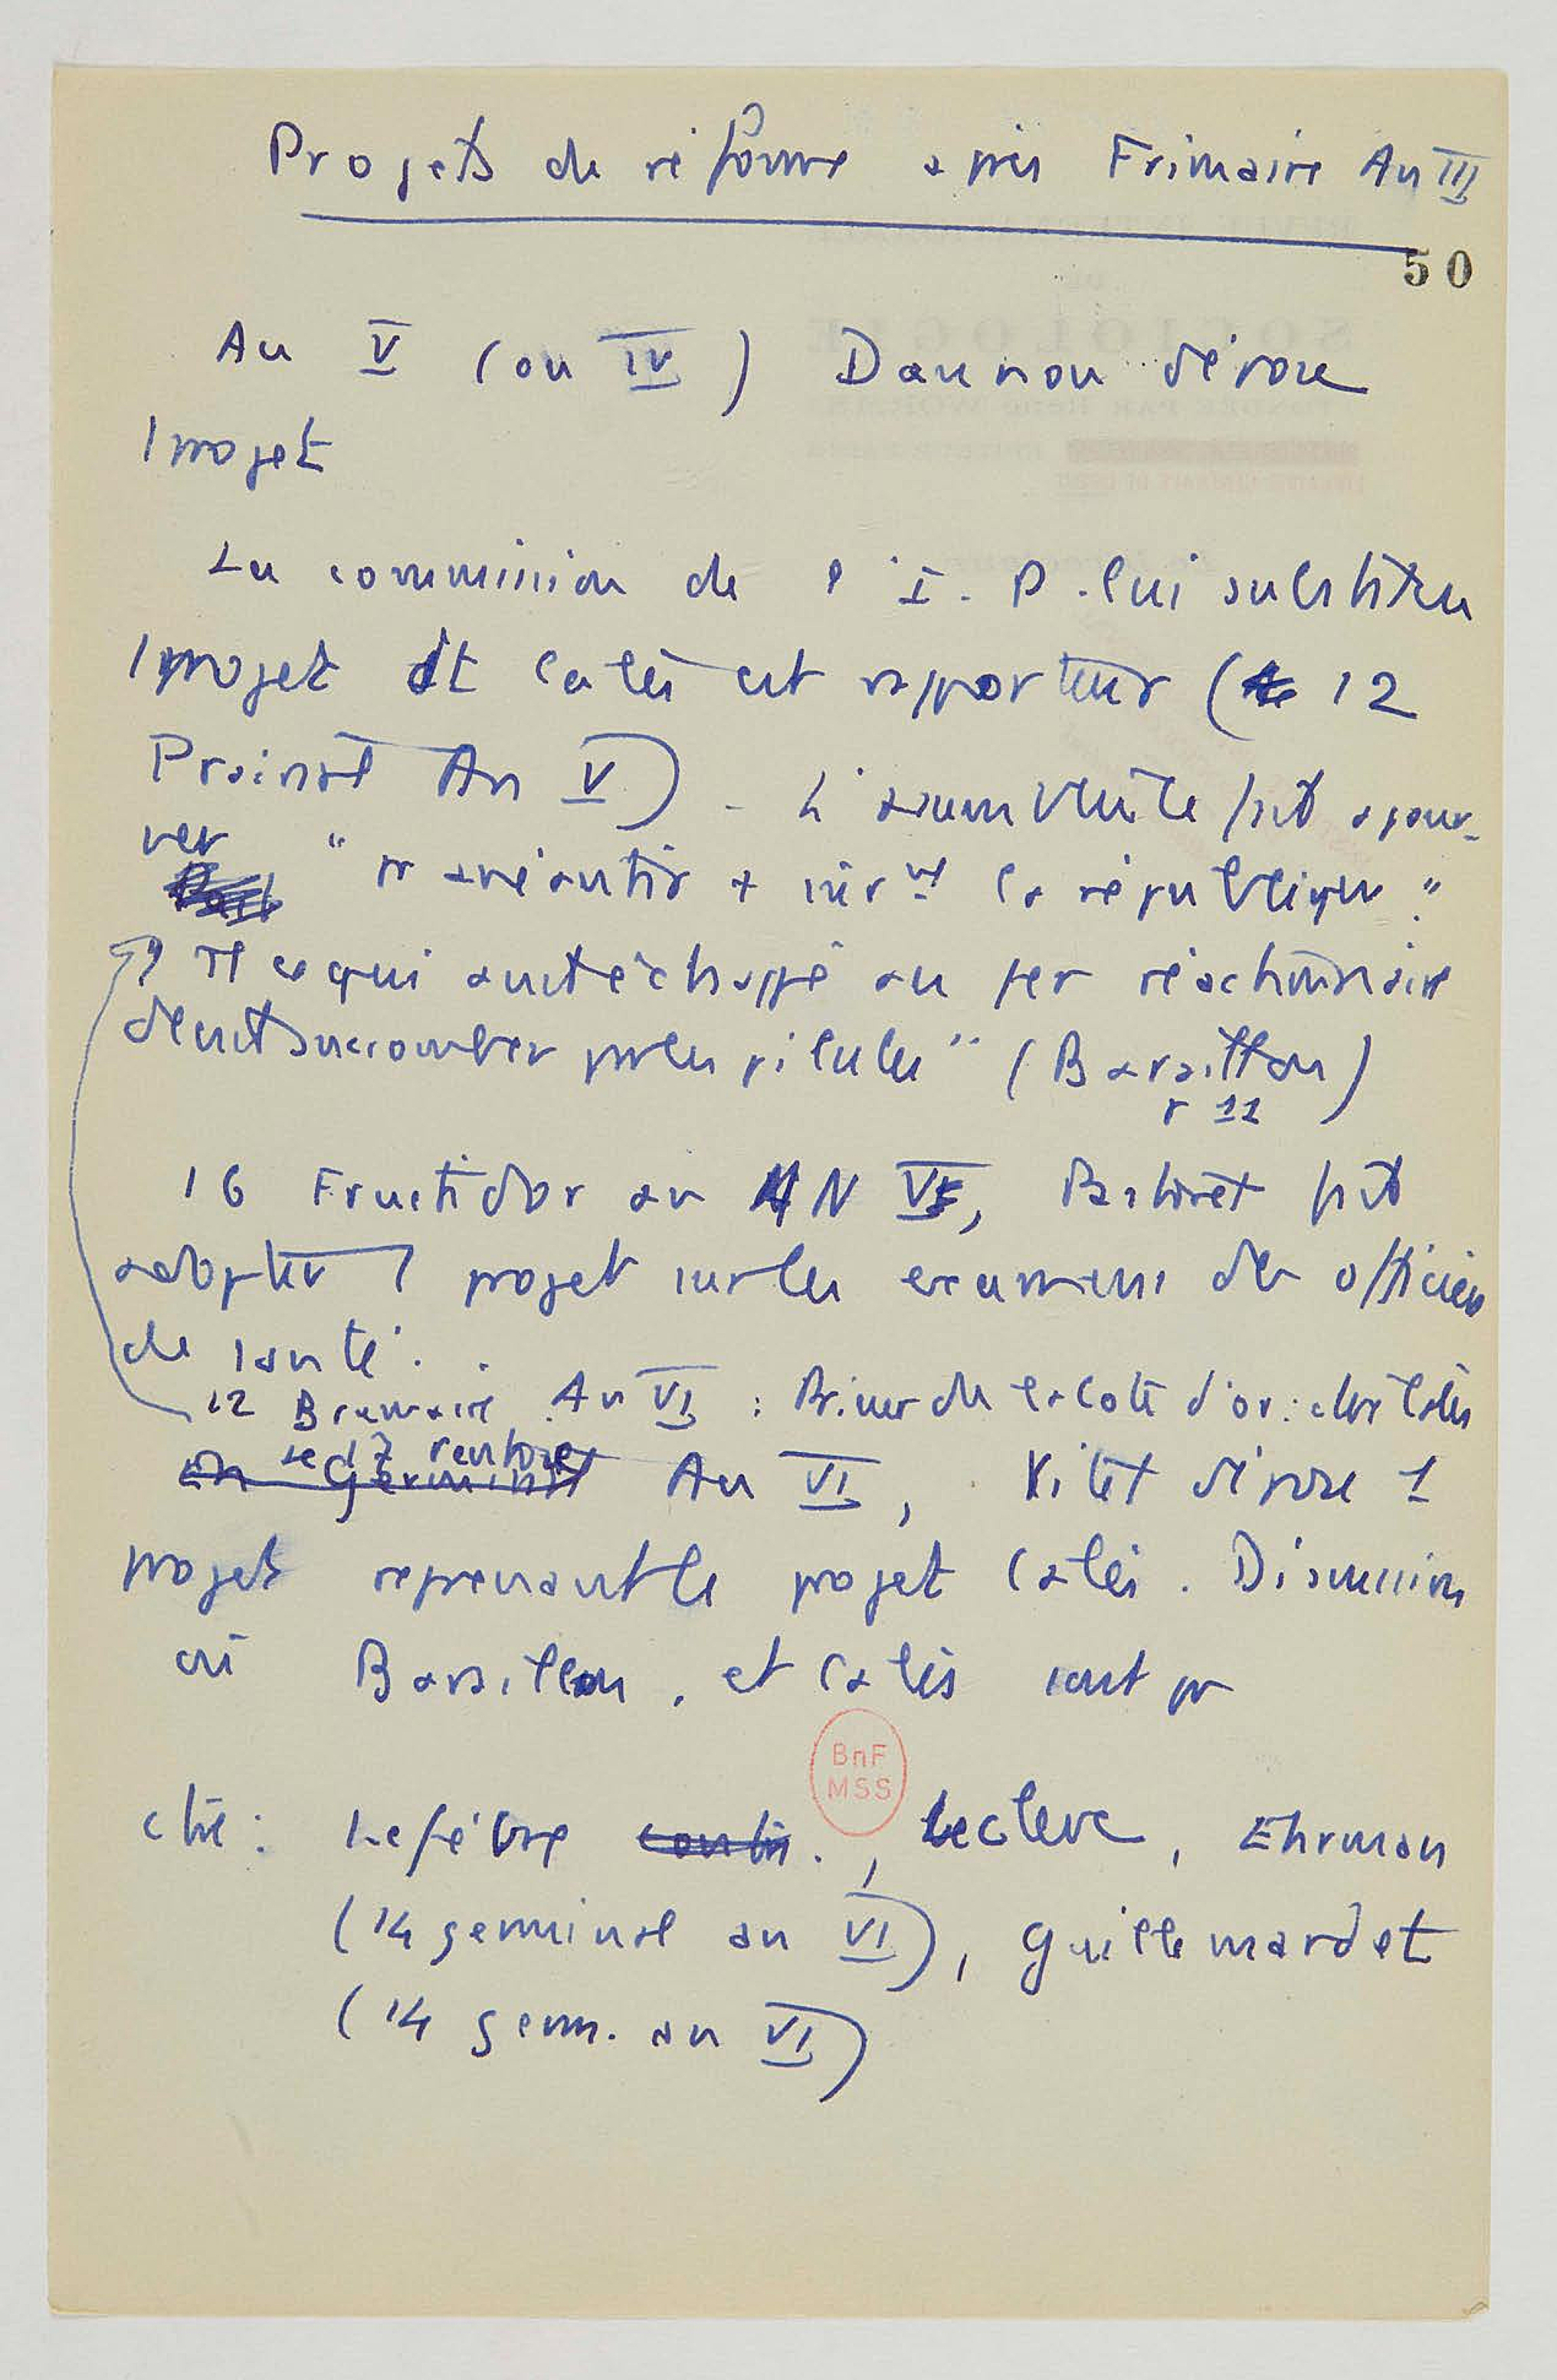 Projets de réforme après Frimaire An III
50
An V (ou IV) Daunou dépose
1 projet
La commission de l'I. P. lui substitue
1 projet dt Calès est rapporteur (12
Prairial An V) - L'assemblée fut
ver " pr anéantir la république."
Tt ce qui avait échappé au fer réactionnaire
devait succomber par les pilules" (Baraillon)
p 11
16 Fructidor an AN V, Pastoret fit
adopter 1 projet sur les examens des officiers
de santé.
12 Brumaire An VI : Prieur de la Cote d'or :
An VI, Vitet dépose 1
projet reprenant le projet Calès. Discussion
où Baraillon, et Calès sont pr
ctre : Lefébvre, Leclerc, Ehrman
(14 germinal an VI), Guillemardet
(14 germ. an VI)
BnF
MSS